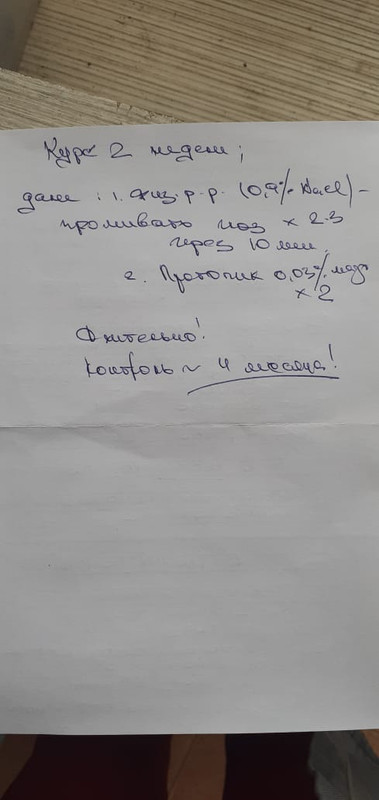 Курс 2 недели;
далее: 1. Физ. р-р. (0,9% NaCl) –
промывать нос х 2-3
через 10 мин.
2. Протопик 0,03% мазь
х 2
Длительно!
Контроль ~ 4 месяца!